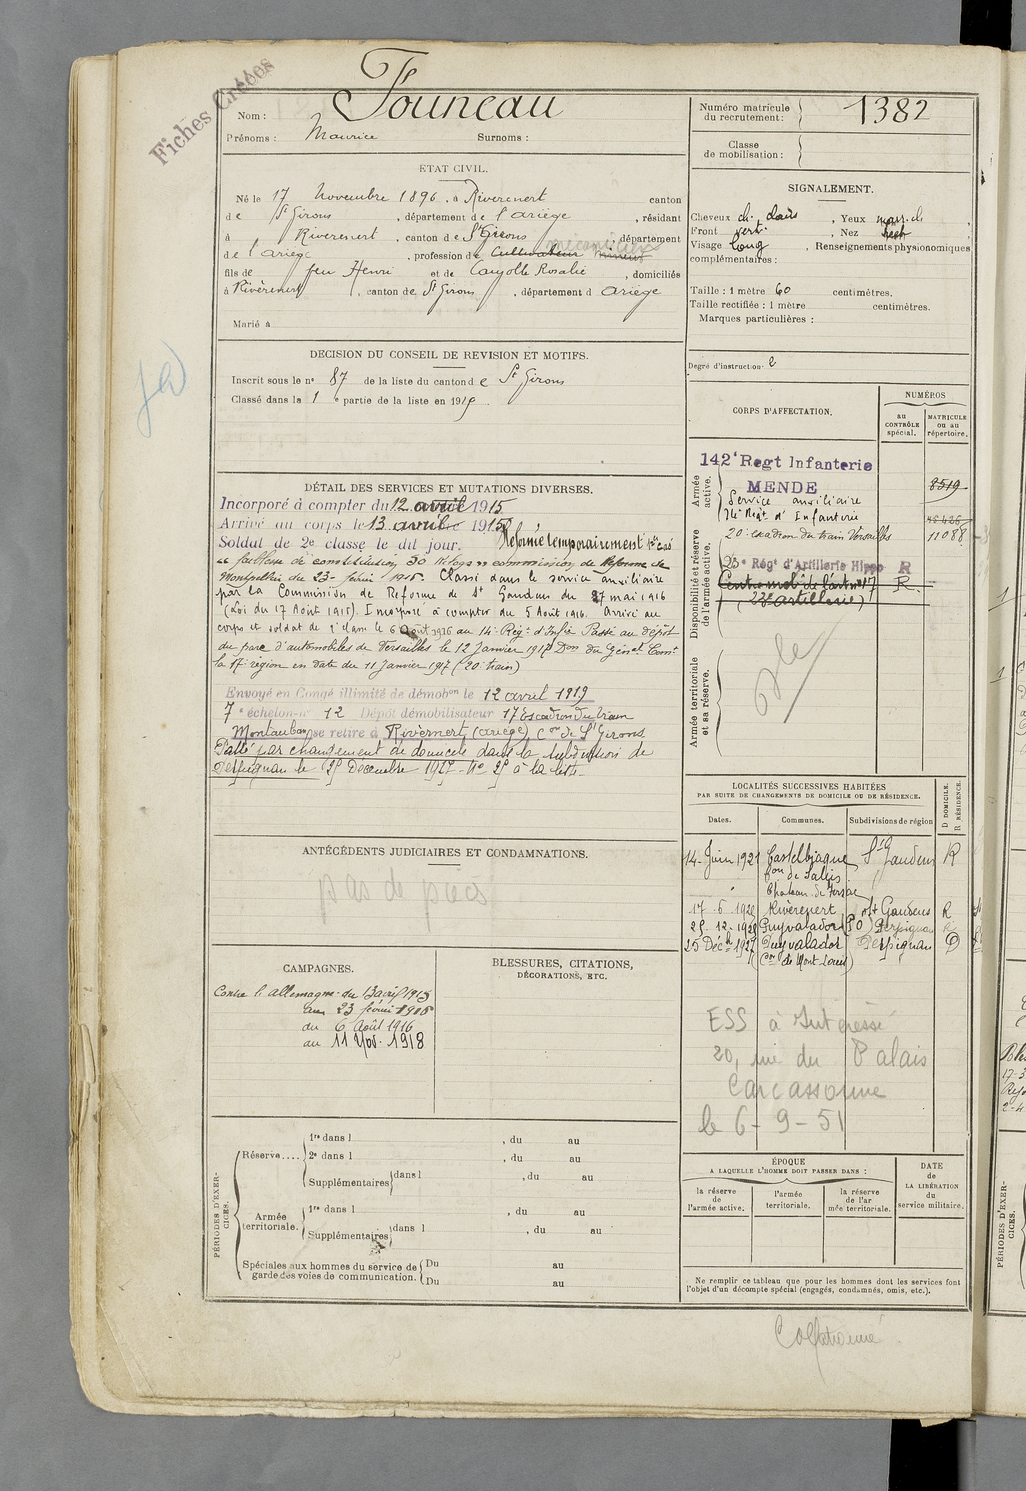 Fiches Créées
Nom : Founeau
Prénoms : Maurice Surnoms :
Numéro matricule du recrutement : 1382
Classe de mobilisation :
ETAT CIVIL.
Né le 17 Novembre 1896, à Riverenert canton
de St Girons, département de l'ariège, résidant
à Riverenert, canton de St Girons, département
de l'ariege, profession de Cultivateur mineur mécanicien
fils de feu Henri et de Caujolle Rosalie, domiciliés
à Rivèrenert, canton de St Girons, département d Ariège
Marié à
SIGNALEMENT.
Cheveux ch. clairs, Yeux mar. cl.
Front vert., Nez rect
Visage long, Renseignements physionomiques
complémentaires :
Taille : 1 mètre 60 centimètres.
Taille rectifiée : 1 mètre centimètres.
Marques particulières :
Degré d'instruction : 2
DECISION DU CONSEIL DE REVISION ET MOTIFS.
Inscrit sous le n° 87 de la liste du canton de St Girons
Classé dans la 1e partie de la liste en 1915
CORPS D'AFFECTATION.
NUMÉROS
au CONTRÔLE spécial.
MATRICULE ou au répertoire.
Armée active.
142e Regt Infanterie
MENDE 8519
Service auxiliaire
14e Regt d'Infanterie
20e escadron du train Versailles 11088
Disponibilité et réserve de l'armée active.
23e Régt d'Artillerie Hippo R
Centre mobe de l'artie n° 17 R.
(23e artillerie)
Armée territoriale et sa réserve.
DÉTAIL DES SERVICES ET MUTATIONS DIVERSES.
Incorporé à compter du 12 avril 1915
Arrivé au corps le 13 avril 1915
Soldat de 2e classe le dit jour. Réformé temporairement
"faiblesse de constitution 50 kilogs" commission de Réforme de
Montpellier du 23 février 1916. Classé dans le service auxiliaire
par la Commission de Réforme de St Gaudens du 27 mai 1916
(Loi du 17 Août 1915). Incorporé à compter du 5 Août 1916. Arrivé au
corps et soldat de 2e classe le 6 Août 1916 au 14e Régt d'Infie Passé au dépôt
du parc d'automobiles de Versailles le 12 Janvier 1917 Don du Général Comt
la 17e région en date du 11 Janvier 1917 (20e train)
Envoyé en Congé illimité de démobon le 12 avril 1919
7e échelon n° 12 Dépôt démobilisateur 17 Escadron du train
Montauban se retire à Rivèrnert, (ariège) Con de St Girons
Passé par changement de domicile dans la subdivision de
Perpignan le 25 Décembre 1927 - No 25 à la liste
ANTÉCÉDENTS JUDICIAIRES ET CONDAMNATIONS.
pas de pièces
LOCALITÉS SUCCESSIVES HABITÉES
PAR SUITE DE CHANGEMENTS DE DOMICILE OU DE RÉSIDENCE.
Dates. Communes. Subdivisions de région D DOMICILE. R RÉSIDENCE.
14 Juin 1921 Castelbiague St Gaudens R
Con de Salies
17 . 6 . 1926 Rivèrenert St Gaudens R
25 . 12 . 1926 Puyvalador (P O) Perpignan R
25 Déch 1927 Puyvalador Perpignan D
(Con de Mont-Louis)
ESS à Intéressé
20, rue du Palais
Carcassonne
le 6-9-51
CAMPAGNES.
Contre l'allemagne du 13 avril 1915
au 23 février 1916
du 6 Août 1916
au 11 Nov. 1918
BLESSURES, CITATIONS,
DÉCORATIONS, ETC.
PÉRIODES D'EXERCICES.
Réserve.... 1re dans l , du au
2e dans l , du au
Supplémentaires dans l , du au
Armée territoriale. 1re dans l , du au
Supplémentaires dans l , du au
Spéciales aux hommes du service de garde des voies de communication. Du au
Du au
ÉPOQUE
A LAQUELLE L'HOMME DOIT PASSER DANS :
la réserve de l'armée active.
l'armée territoriale.
la réserve de l'armée territoriale.
DATE DE LA LIBÉRATION du service militaire.
Ne remplir ce tableau que pour les hommes dont les services font
l'objet d'un décompte spécial (engagés, condamnés, omis, etc.).
Collationné